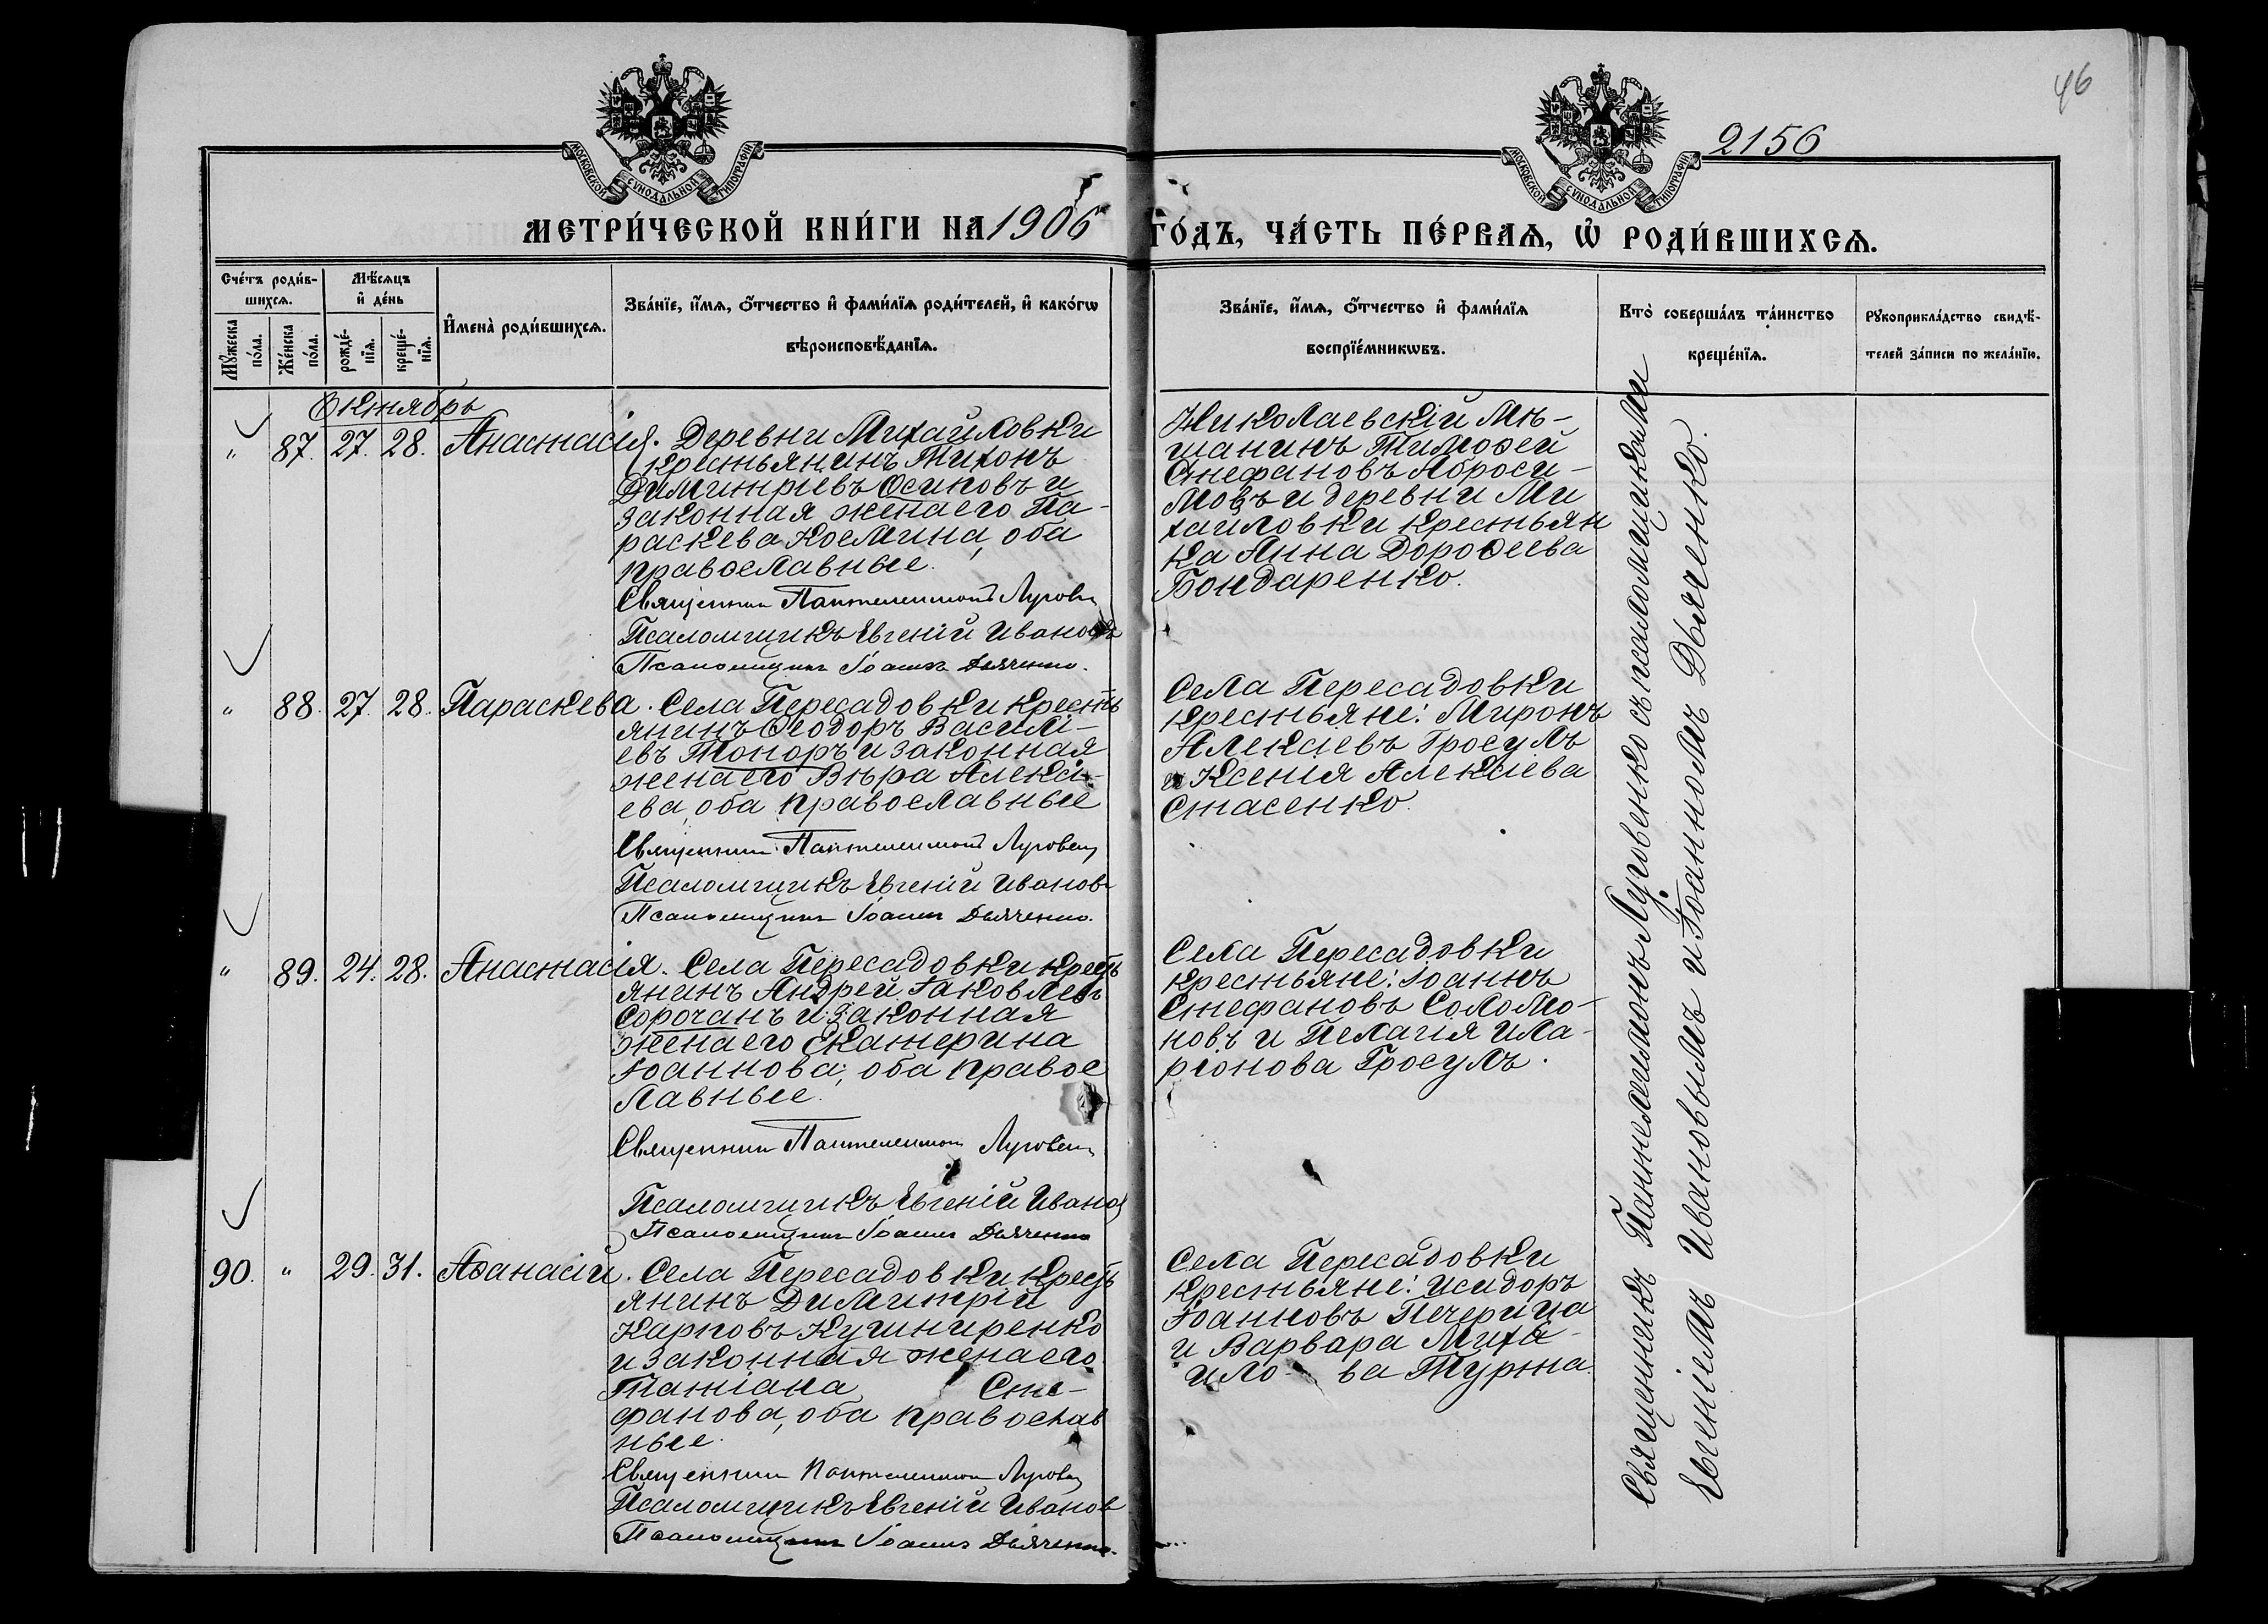 46
2156
МОСКОВСКОЙ СѴНОДАЛЬНОЙ ТИПОГРАФІИ
МОСКОВСКОЙ СѴНОДАЛЬНОЙ ТИПОГРАФІИ
МЕТРИ́ЧЕСКОЙ КНИ́ГИ НА 1906 ГО́ДЪ, ЧА́СТЬ ПЕ́РВАѦ, Ѡ҆ РОДИ́ВШИХСѦ.
Сче́тъ роди́в-
шихсѧ.
Мꙋ́жеска
по́ла.
Же́нска
по́ла.
Мѣ́сѧцъ
и҆ де́нь
рожде́-
нїѧ.
креще́-
нїѧ.
И҆мена̀ роди́вшихсѧ.
Зва́нїе, и҆́мѧ, ѻ҆́тчество и҆ фами́лїѧ роди́телей, и҆ како́гѡ
вѣроисповѣ́данїѧ.
Зва́нїе, и҆́мѧ, ѻ҆́тчество и҆ фами́лїѧ
воспрїе́мникѡвъ.
Кто̀ соверша́лъ та́инство
креще́нїѧ.
Рꙋкоприкла́дство свидѣ́-
телей за́писи по жела́нїю.
Октябрь
" 87. 27. 28. Анастасія. Деревни Михайловки
крестьянинъ Тихонъ
Димитріевъ Осиповъ и
законная жена его Па-
раскева Космина, оба
православные.
Священник Пантелеимонъ Лугове
Псаломщикъ Евгеній Ивановъ
Псаломщикъ Іоаннъ Дьяченко.
Николаевскій мѣ-
щанинъ Тимоѳей
Стефановъ Аброси-
мовъ и деревни Ми
хайловки крестьян
ка Анна Дороѳеева
Бондаренко.
" 88. 27. 28. Параскева. Села Пересадовки кресть
янинъ Ѳеодоръ Василі-
евъ Топоръ и законная
жена его Вѣра Алексі-
ева, оба православные
Священник Пантелеимонъ Луговен
Псаломщикъ Евгеній Иванов
Псаломщикъ Іоаннъ Дьяченко.
Села Пересадовки
крестьяне: Миронъ
Алексіевъ Гросулъ
и Ксенія Алексіева
Стасенко.
" 89. 24. 28. Анастасія. Села Пересадовки кресть
янинъ Андрей Іаковлевъ
Сорочанъ и законная
жена его Екатерина
Іоаннова, оба правос
лавные.
Священник Пантелеимон Луговен
Псаломщикъ Евгеній Иванов
Псаломщикъ Іоаннъ Дьяченко
Села Пересадовки
крестьяне: Іоаннъ
Стефановъ Соломо-
новъ и Пелагія Ила-
ріонова Гросулъ.
90. " 29. 31. Аѳанасій. Села Пересадовки кресть
янинъ Димитрій
Карповъ Кушниренко
и законная жена его
Татіана Сте-
фанова, оба православ
ные.
Священник Пантелеимон Луговен
Псаломщикъ Евгеній Иванов
Псаломщикъ Іоаннъ Дьяченко.
Села Пересадовки
крестьяне: Исидоръ
Іоанновъ Печерица
и Варвара Миха-
ило- ва Турта.
Священникъ Пантелеимонъ Луговенко съ псаломщиками
Евгеніемъ Ивановымъ и Іоанномъ Дьяченко.